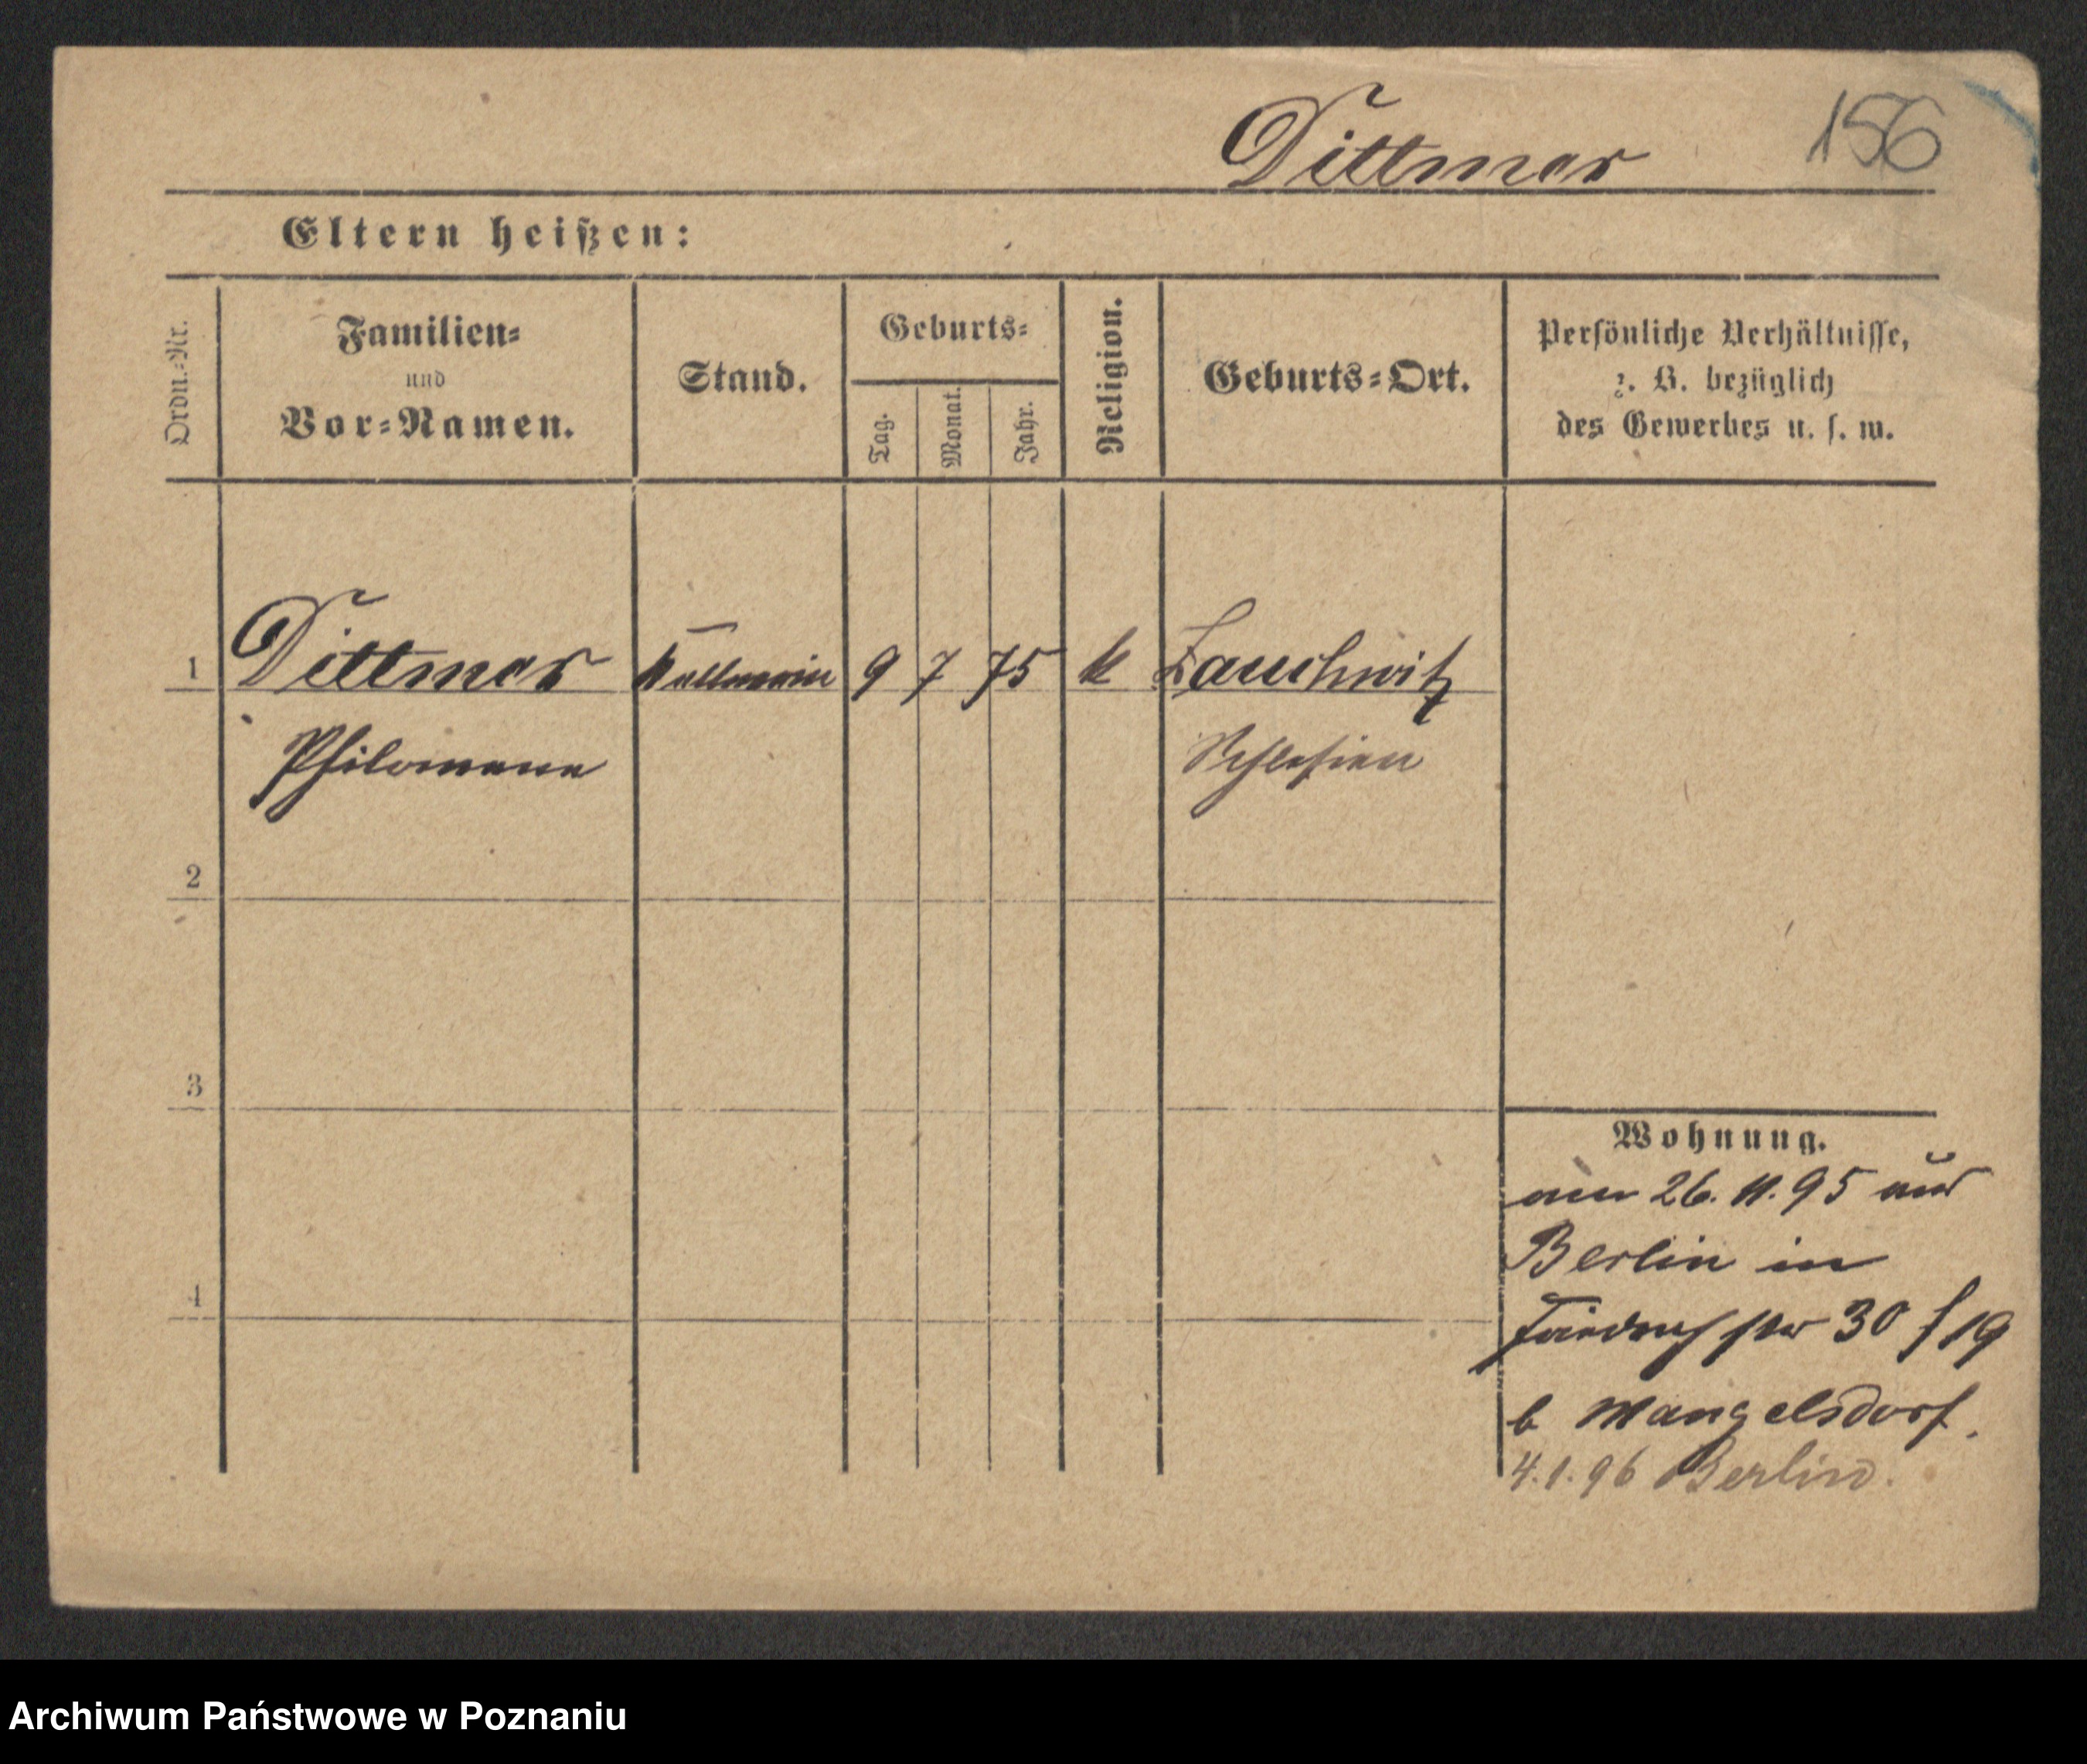 Dittmar 156
Eltern heißen:
Ordn.-Nr.
Familien-
und
Vor-Namen.
Stand.
Geburts-
Tag.
Monat.
Jahr.
Religion.
Geburts-Ort.
Persönliche Verhältnisse,
z. B. bezüglich
des Gewerbes u. s. w.
1 Dittmar Kellnerin 9 7 75 k Zauchwitz
Philomena Schlesien
2
3
4
Wohnung.
am 26. 11. 95 aus
Berlin in
Friedrichstr 30 / 19
b Mangelsdorf.
4.1.96 Berlin.
Archiwum Państwowe w Poznaniu